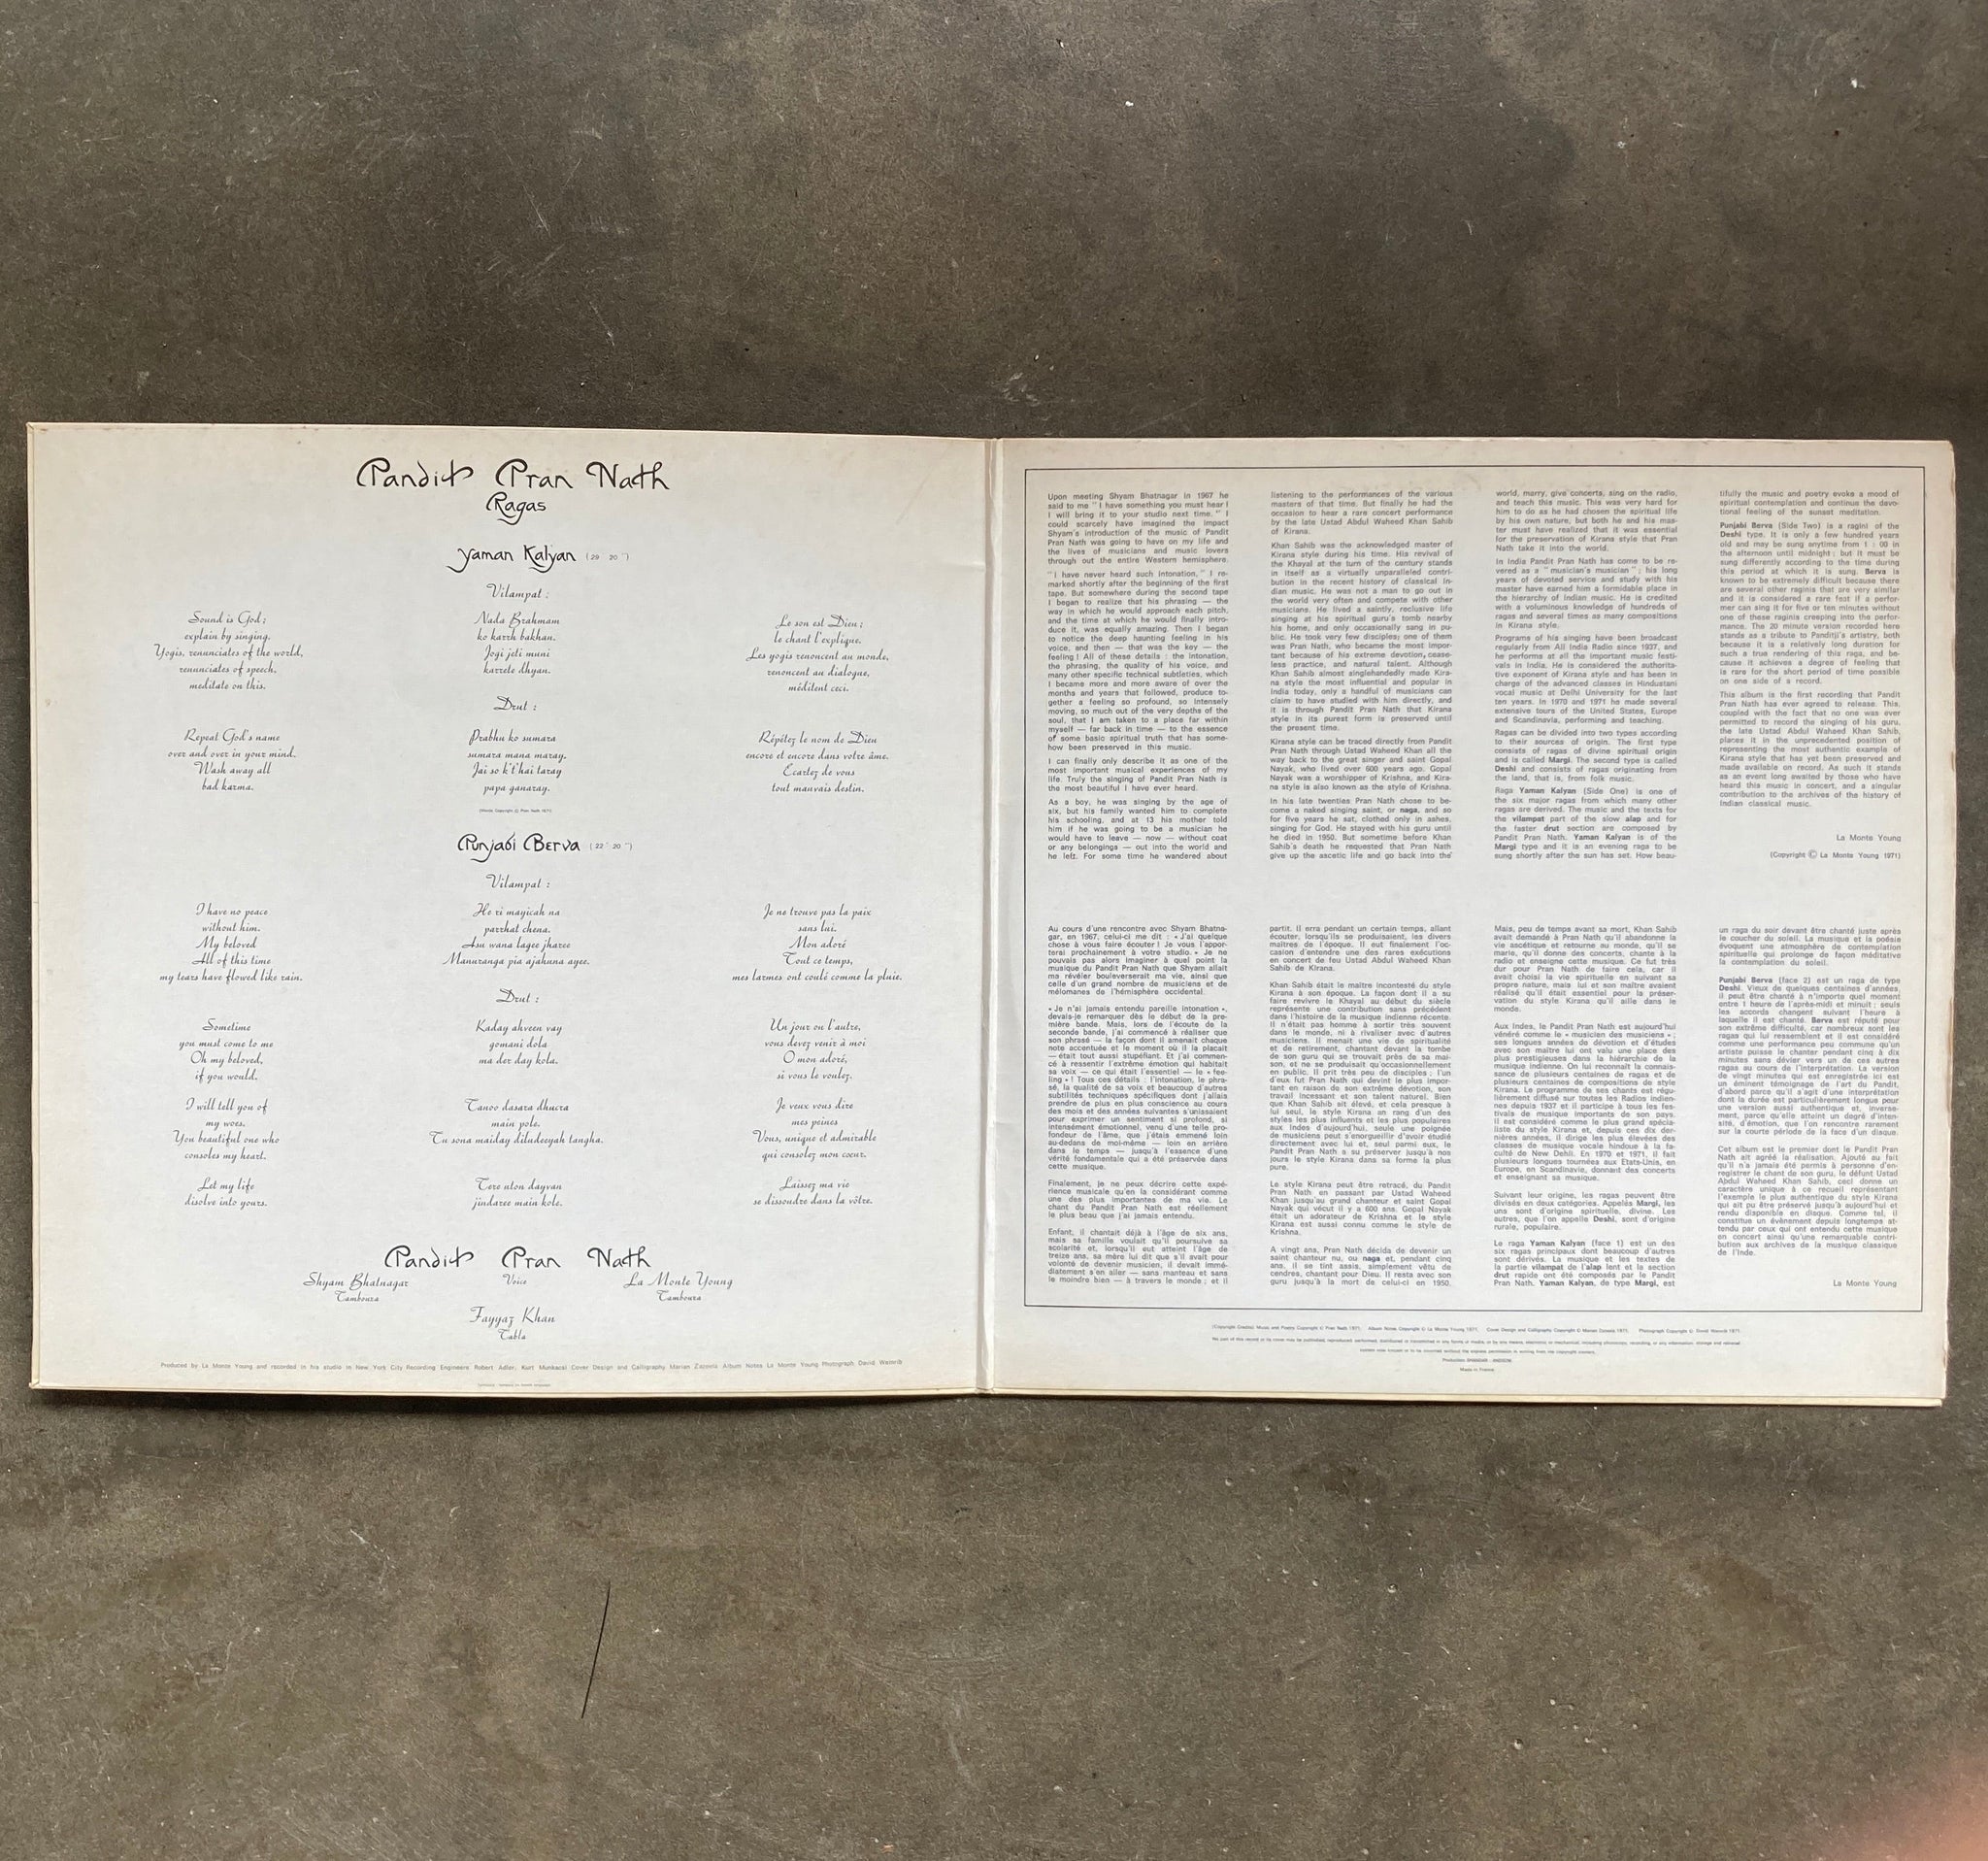 Pandit Pran Nath
Ragas
Yaman Kalyan (29' 20'')
Vilampat :
Sound is God;
explain by singing.
Yogis, renunciates of the world,
renunciates of speech,
meditate on this.
Nada Brahmam
ko karzh bakhan.
Jogi jeti muni
karrete dhyan.
Le son est Dieu ;
le chant l'explique.
Les yogis renoncent au monde,
renoncent au dialogue,
méditent ceci.
Drut :
Repeat God's name
over and over in your mind.
Wash away all
bad karma.
Prabhu ko sumara
sumara mana maray.
Jai so k't'hai taray
papa ganaray.
Répétez le nom de Dieu
encore et encore dans votre âme.
Ecartez de vous
tout mauvais destin.
(Words Copyright © Pran Nath 1971)
Punjabi Berva (22' 20'')
Vilampat :
I have no peace
without him.
My beloved
All of this time
my tears have flowed like rain.
He ri mayicah na
parrhat chena.
Asu wana lagee jharee
Manuranga pia ajahuna ayee.
Je ne trouve pas la paix
sans lui.
Mon adoré
Tout ce temps,
mes larmes ont coulé comme la pluie.
Drut :
Sometime
you must come to me
Oh my beloved,
if you would.
Kaday ahveen vay
gomani dola
ma der day kola.
Un jour ou l'autre,
vous devez venir à moi
O mon adoré,
si vous le voulez.
I will tell you of
my woes.
You beautiful one who
consoles my heart.
Tanoo dasara dhucra
main pole.
Tu sona maiday diludeeyah tangha.
Je veux vous dire
mes peines
Vous, unique et admirable
qui consolez mon cœur.
Let my life
disolve into yours.
Tere nton dayvan
jindaree main kole.
Laissez ma vie
se dissoudre dans la vôtre.
Pandit Pran Nath
Voice
Shyam Bhatnagar
Tamboura
La Monte Young
Tamboura
Fayyaz Khan
Tabla
Produced by La Monte Young and recorded in his studio in New York City Recording Engineers Robert Adler, Kurt Munkacsi Cover Design and Calligraphy Marian Zazeela Album Notes La Monte Young Photograph David Weinrib
Upon meeting Shyam Bhatnagar in 1967 he
said to me " I have something you must hear !
I will bring it to your studio next time. " I
could scarcely have imagined the impact
Shyam's introduction of the music of Pandit
Pran Nath was going to have on my life and
the lives of musicians and music lovers
through out the entire Western hemisphere.
" I have never heard such intonation, " I re-
marked shortly after the beginning of the first
tape. But somewhere during the second tape
I began to realize that his phrasing — the
way in which he would approach each pitch,
and the time at which he would finally intro-
duce it, was equally amazing. Then I began
to notice the deep haunting feeling in his
voice, and then — that was the key — the
feeling ! All of these details : the intonation,
the phrasing, the quality of his voice, and
many other specific technical subtleties, which
I became more and more aware of over the
months and years that followed, produce to-
gether a feeling so profound, so intensely
moving, so much out of the very depths of the
soul, that I am taken to a place far within
myself — far back in time — to the essence
of some basic spiritual truth that has some-
how been preserved in this music.
I can finally only describe it as one of the
most important musical experiences of my
life. Truly the singing of Pandit Pran Nath is
the most beautiful I have ever heard.
As a boy, he was singing by the age of
six, but his family wanted him to complete
his schooling, and at 13 his mother told
him if he was going to be a musician he
would have to leave — now — without coat
or any belongings — out into the world and
he left. For some time he wandered about
listening to the performances of the various
masters of that time. But finally he had the
occasion to hear a rare concert performance
by the late Ustad Abdul Waheed Khan Sahib
of Kirana.
Khan Sahib was the acknowledged master of
Kirana style during his time. His revival of
the Khayal at the turn of the century stands
in itself as a virtually unparalleled contri-
bution in the recent history of classical In-
dian music. He was not a man to go out in
the world very often and compete with other
musicians. He lived a saintly, reclusive life
singing at his spiritual guru's tomb nearby
his home, and only occasionally sang in pu-
blic. He took very few disciples; one of them
was Pran Nath, who became the most impor-
tant because of his extreme devotion, cease-
less practice, and natural talent. Although
Khan Sahib almost singlehandedly made Kira-
na style the most influential and popular in
India today, only a handful of musicians can
claim to have studied with him directly, and
it is through Pandit Pran Nath that Kirana
style in its purest form is preserved until
the present time.
Kirana style can be traced directly from Pandit
Pran Nath through Ustad Waheed Khan all the
way back to the great singer and saint Gopal
Nayak, who lived over 600 years ago. Gopal
Nayak was a worshipper of Krishna, and Kira-
na style is also known as the style of Krishna.
In his late twenties Pran Nath chose to be-
come a naked singing saint, or naga, and so
for five years he sat, clothed only in ashes,
singing for God. He stayed with his guru until
he died in 1950. But sometime before Khan
Sahib's death he requested that Pran Nath
give up the ascetic life and go back into the
world, marry, give concerts, sing on the radio,
and teach this music. This was very hard for
him to do as he had chosen the spiritual life
by his own nature, but both he and his mas-
ter must have realized that it was essential
for the preservation of Kirana style that Pran
Nath take it into the world.
In India Pandit Pran Nath has come to be re-
vered as a " musician's musician " ; his long
years of devoted service and study with his
master have earned him a formidable place in
the hierarchy of Indian music. He is credited
with a voluminous knowledge of hundreds of
ragas and several times as many compositions
in Kirana style.
Programs of his singing have been broadcast
regularly from All India Radio since 1937, and
he performs at all the important music festi-
vals in India. He is considered the authorita-
tive exponent of Kirana style and has been in
charge of the advanced classes in Hindustani
vocal music at Delhi University for the last
ten years. In 1970 and 1971 he made several
extensive tours of the United States, Europe
and Scandinavia, performing and teaching.
Ragas can be divided into two types according
to their sources of origin. The first type
consists of ragas of divine spiritual origin
and is called Margi. The second type is called
Deshi and consists of ragas originating from
the land, that is, from folk music.
Raga Yaman Kalyan (Side One) is one of
the six major ragas from which many other
ragas are derived. The music and the texts for
the vilampat part of the slow alap and for
the faster drut section are composed by
Pandit Pran Nath. Yaman Kalyan is of the
Margi type and it is an evening raga to be
sung shortly after the sun has set. How beau-
tifully the music and poetry evoke a mood of
spiritual contemplation and continue the devo-
tional feeling of the sunset meditation.
Punjabi Berva (Side Two) is a ragini of the
Deshi type. It is only a few hundred years
old and may be sung anytime from 1 : 00 in
the afternoon until midnight ; but it must be
sung differently according to the time during
this period at which it is sung. Berva is
known to be extremely difficult because there
are several other raginis that are very similar
and it is considered a rare feat if a perfor-
mer can sing it for five or ten minutes without
one of these raginis creeping into the perfor-
mance. The 20 minute version recorded here
stands as a tribute to Panditji's artistry, both
because it is a relatively long duration for
such a true rendering of this raga, and be-
cause it achieves a degree of feeling that
is rare for the short period of time possible
on one side of a record.
This album is the first recording that Pandit
Pran Nath has ever agreed to release. This,
coupled with the fact that no one was ever
permitted to record the singing of his guru,
the late Ustad Abdul Waheed Khan Sahib,
places it in the unprecedented position of
representing the most authentic example of
Kirana style that has yet been preserved and
made available on record. As such it stands
as an event long awaited by those who have
heard this music in concert, and a singular
contribution to the archives of the history of
Indian classical music.
La Monte Young
(Copyright © La Monte Young 1971)
Au cours d'une rencontre avec Shyam Bhatna-
gar, en 1967, celui-ci me dit : « J'ai quelque
chose à vous faire écouter ! Je vous l'appor-
terai prochainement à votre studio. » Je ne
pouvais pas alors imaginer à quel point la
musique du Pandit Pran Nath que Shyam allait
me révéler bouleverserait ma vie, ainsi que
celle d'un grand nombre de musiciens et de
mélomanes de l'hémisphère occidental.
« Je n'ai jamais entendu pareille intonation »,
devais-je remarquer dès le début de la pre-
mière bande. Mais, lors de l'écoute de la
seconde bande, j'ai commencé à réaliser que
son phrasé — la façon dont il amenait chaque
note accentuée et le moment où il la plaçait
— était tout aussi stupéfiant. Et j'ai commen-
cé à ressentir l'extrême émotion qui habitait
sa voix — ce qui était l'essentiel — le « fee-
ling » ! Tous ces détails : l'intonation, le phra-
sé, la qualité de sa voix et beaucoup d'autres
subtilités techniques spécifiques dont j'allais
prendre de plus en plus conscience au cours
des mois et des années suivantes s'unissaient
pour exprimer un sentiment si profond, si
intensément émotionnel, venu d'une telle pro-
fondeur de l'âme, que j'étais emmené loin
au-dedans de moi-même — loin en arrière
dans le temps — jusqu'à l'essence d'une
vérité fondamentale qui a été préservée dans
cette musique.
Finalement, je ne peux décrire cette expé-
rience musicale qu'en la considérant comme
une des plus importantes de ma vie. Le
chant du Pandit Pran Nath est réellement
le plus beau que j'ai jamais entendu.
Enfant, il chantait déjà à l'âge de six ans,
mais sa famille voulait qu'il poursuive sa
scolarité et, lorsqu'il eut atteint l'âge de
treize ans, sa mère lui dit que s'il avait pour
volonté de devenir musicien, il devait immé-
diatement s'en aller — sans manteau et sans
le moindre bien — à travers le monde ; et il
partit. Il erra pendant un certain temps, allant
écouter, lorsqu'ils se produisaient, les divers
maîtres de l'époque. Il eut finalement l'oc-
casion d'entendre une des rares exécutions
en concert de feu Ustad Abdul Waheed Khan
Sahib de Kirana.
Khan Sahib était le maître incontesté du style
Kirana à son époque. La façon dont il a su
faire revivre le Khayal au début du siècle
représente une contribution sans précédent
dans l'histoire de la musique indienne récente.
Il n'était pas homme à sortir très souvent
dans le monde, ni à rivaliser avec d'autres
musiciens. Il menait une vie de spiritualité
et de retirement, chantant devant la tombe
de son guru qui se trouvait près de sa mai-
son, et ne se produisait qu'occasionnellement
en public. Il prit très peu de disciples ; l'un
d'eux fut Pran Nath qui devint le plus impor-
tant en raison de son extrême dévotion, son
travail incessant et son talent naturel. Bien
que Khan Sahib ait élevé, et cela presque à
lui seul, le style Kirana au rang d'un des
styles les plus influents et les plus populaires
aux Indes d'aujourd'hui, seule une poignée
de musiciens peut s'enorgueillir d'avoir étudié
directement avec lui et, seul parmi eux, le
Pandit Pran Nath a su préserver jusqu'à nos
jours le style Kirana dans sa forme la plus
pure.
Le style Kirana peut être retracé, du Pandit
Pran Nath en passant par Ustad Waheed
Khan jusqu'au grand chanteur et saint Gopal
Nayak qui vécut il y a 600 ans. Gopal Nayak
était un adorateur de Krishna et le style
Kirana est aussi connu comme le style de
Krishna.
A vingt ans, Pran Nath décida de devenir un
saint chanteur nu, ou naga et, pendant cinq
ans, il se tint assis, simplement vêtu de
cendres, chantant pour Dieu. Il resta avec son
guru jusqu'à la mort de celui-ci en 1950.
Mais, peu de temps avant sa mort, Khan Sahib
avait demandé à Pran Nath qu'il abandonne la
vie ascétique et retourne au monde, qu'il se
marie, qu'il donne des concerts, chante à la
radio et enseigne cette musique. Ce fut très
dur pour Pran Nath de faire cela, car il
avait choisi la vie spirituelle en suivant sa
propre nature, mais lui et son maître avaient
réalisé qu'il était essentiel pour la préser-
vation du style Kirana qu'il aille dans le
monde.
Aux Indes, le Pandit Pran Nath est aujourd'hui
vénéré comme le « musicien des musiciens » ;
ses longues années de dévotion et d'études
avec son maître lui ont valu une place des
plus prestigieuses dans la hiérarchie de la
musique indienne. On lui reconnaît la connais-
sance de plusieurs centaines de ragas et de
plusieurs centaines de compositions de style
Kirana. Le programme de ses chants est régu-
lièrement diffusé sur toutes les Radios indien-
nes depuis 1937 et il participe à tous les fes-
tivals de musique importants de son pays.
Il est considéré comme le plus grand spécia-
liste du style Kirana et, depuis ces dix der-
nières années, il dirige les plus élevées des
classes de musique vocale hindoue à la fa-
culté de New Dehli. En 1970 et 1971, il fait
plusieurs longues tournées aux Etats-Unis, en
Europe, en Scandinavie, donnant des concerts
et enseignant sa musique.
Suivant leur origine, les ragas peuvent être
divisés en deux catégories. Appelés Margi, les
uns sont d'origine spirituelle, divine. Les
autres, que l'on appelle Deshi, sont d'origine
rurale, populaire.
Le raga Yaman Kalyan (face 1) est un des
six ragas principaux dont beaucoup d'autres
sont dérivés. La musique et les textes de
la partie vilampat de l'alap lent et la section
drut rapide ont été composés par le Pandit
Pran Nath. Yaman Kalyan, de type Margi, est
un raga du soir devant être chanté juste après
le coucher du soleil. La musique et la poésie
évoquent une atmosphère de contemplation
spirituelle qui prolonge de façon méditative
la contemplation du soleil.
Punjabi Berva (face 2) est un raga de type
Deshi. Vieux de quelques centaines d'années,
il peut être chanté à n'importe quel moment
entre 1 heure de l'après-midi et minuit ; seuls
les accords changent suivant l'heure à
laquelle il est chanté. Berva est réputé pour
son extrême difficulté, car nombreux sont les
ragas qui lui ressemblent et il est considéré
comme une performance peu commune qu'un
artiste puisse le chanter pendant cinq à dix
minutes sans dévier vers un de ces autres
ragas au cours de l'interprétation. La version
de vingt minutes qui est enregistrée ici est
un éminent témoignage de l'art du Pandit,
d'abord parce qu'il s'agit d'une interprétation
dont la durée est particulièrement longue pour
une version aussi authentique et, inverse-
ment, parce qu'elle atteint un degré d'inten-
sité, d'émotion, que l'on rencontre rarement
sur la courte période de la face d'un disque.
Cet album est le premier dont le Pandit Pran
Nath ait agréé la réalisation. Ajouté au fait
qu'il n'a jamais été permis à personne d'en-
registrer le chant de son guru, le défunt Ustad
Abdul Waheed Khan Sahib, ceci donne un
caractère unique à ce recueil représentant
l'exemple le plus authentique du style Kirana
qui ait pu être préservé jusqu'à aujourd'hui et
rendu disponible en disque. Comme tel, il
constitue un évènement depuis longtemps at-
tendu par ceux qui ont entendu cette musique
en concert ainsi qu'une remarquable contri-
bution aux archives de la musique classique
de l'Inde.
La Monte Young
(Copyright Credits) Music and Poetry Copyright © Pran Nath 1971. Album Notes Copyright © La Monte Young 1971. Cover Design and Calligraphy Copyright © Marian Zazeela 1971. Photograph Copyright © David Weinrib 1971.
Made in France